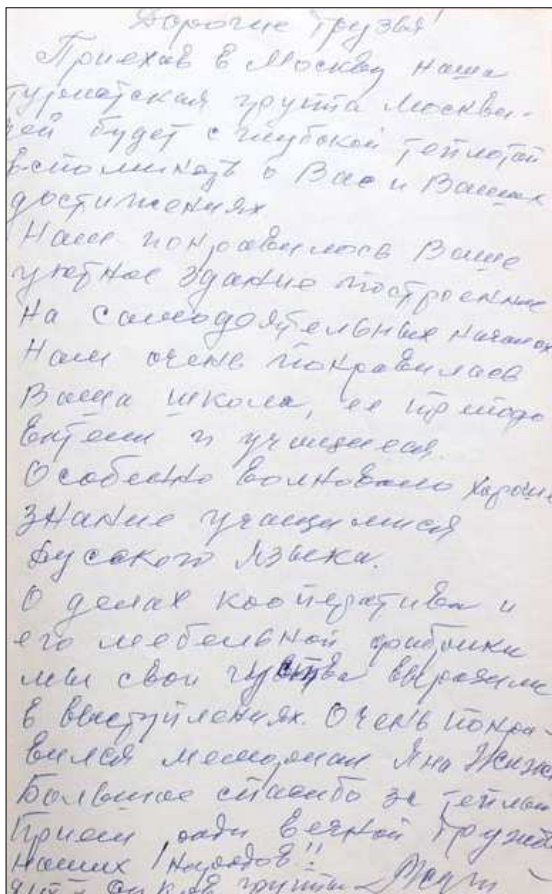 Дорогие друзья!
Приехав в Москву наша
туристская группа москви-
чей будет с глубокой теплотой
вспоминать о Вас и Ваших
достижениях
Нам понравилось Ваше
уютное здание построенное
на самодеятельных началах
Нам очень понравилась
Ваша школа, ее препода
ватели и учащиеся.
Особенно волновало хорошее
знание учащимися
русского языка.
О делах кооператива и
его мебельной фабрики
мы свои чувства выразили
в выступлениях. Очень понра-
вился мемориал Яна Жижки
Большое спасибо за теплый
прием ради вечной дружбы
наших народов!!
группы